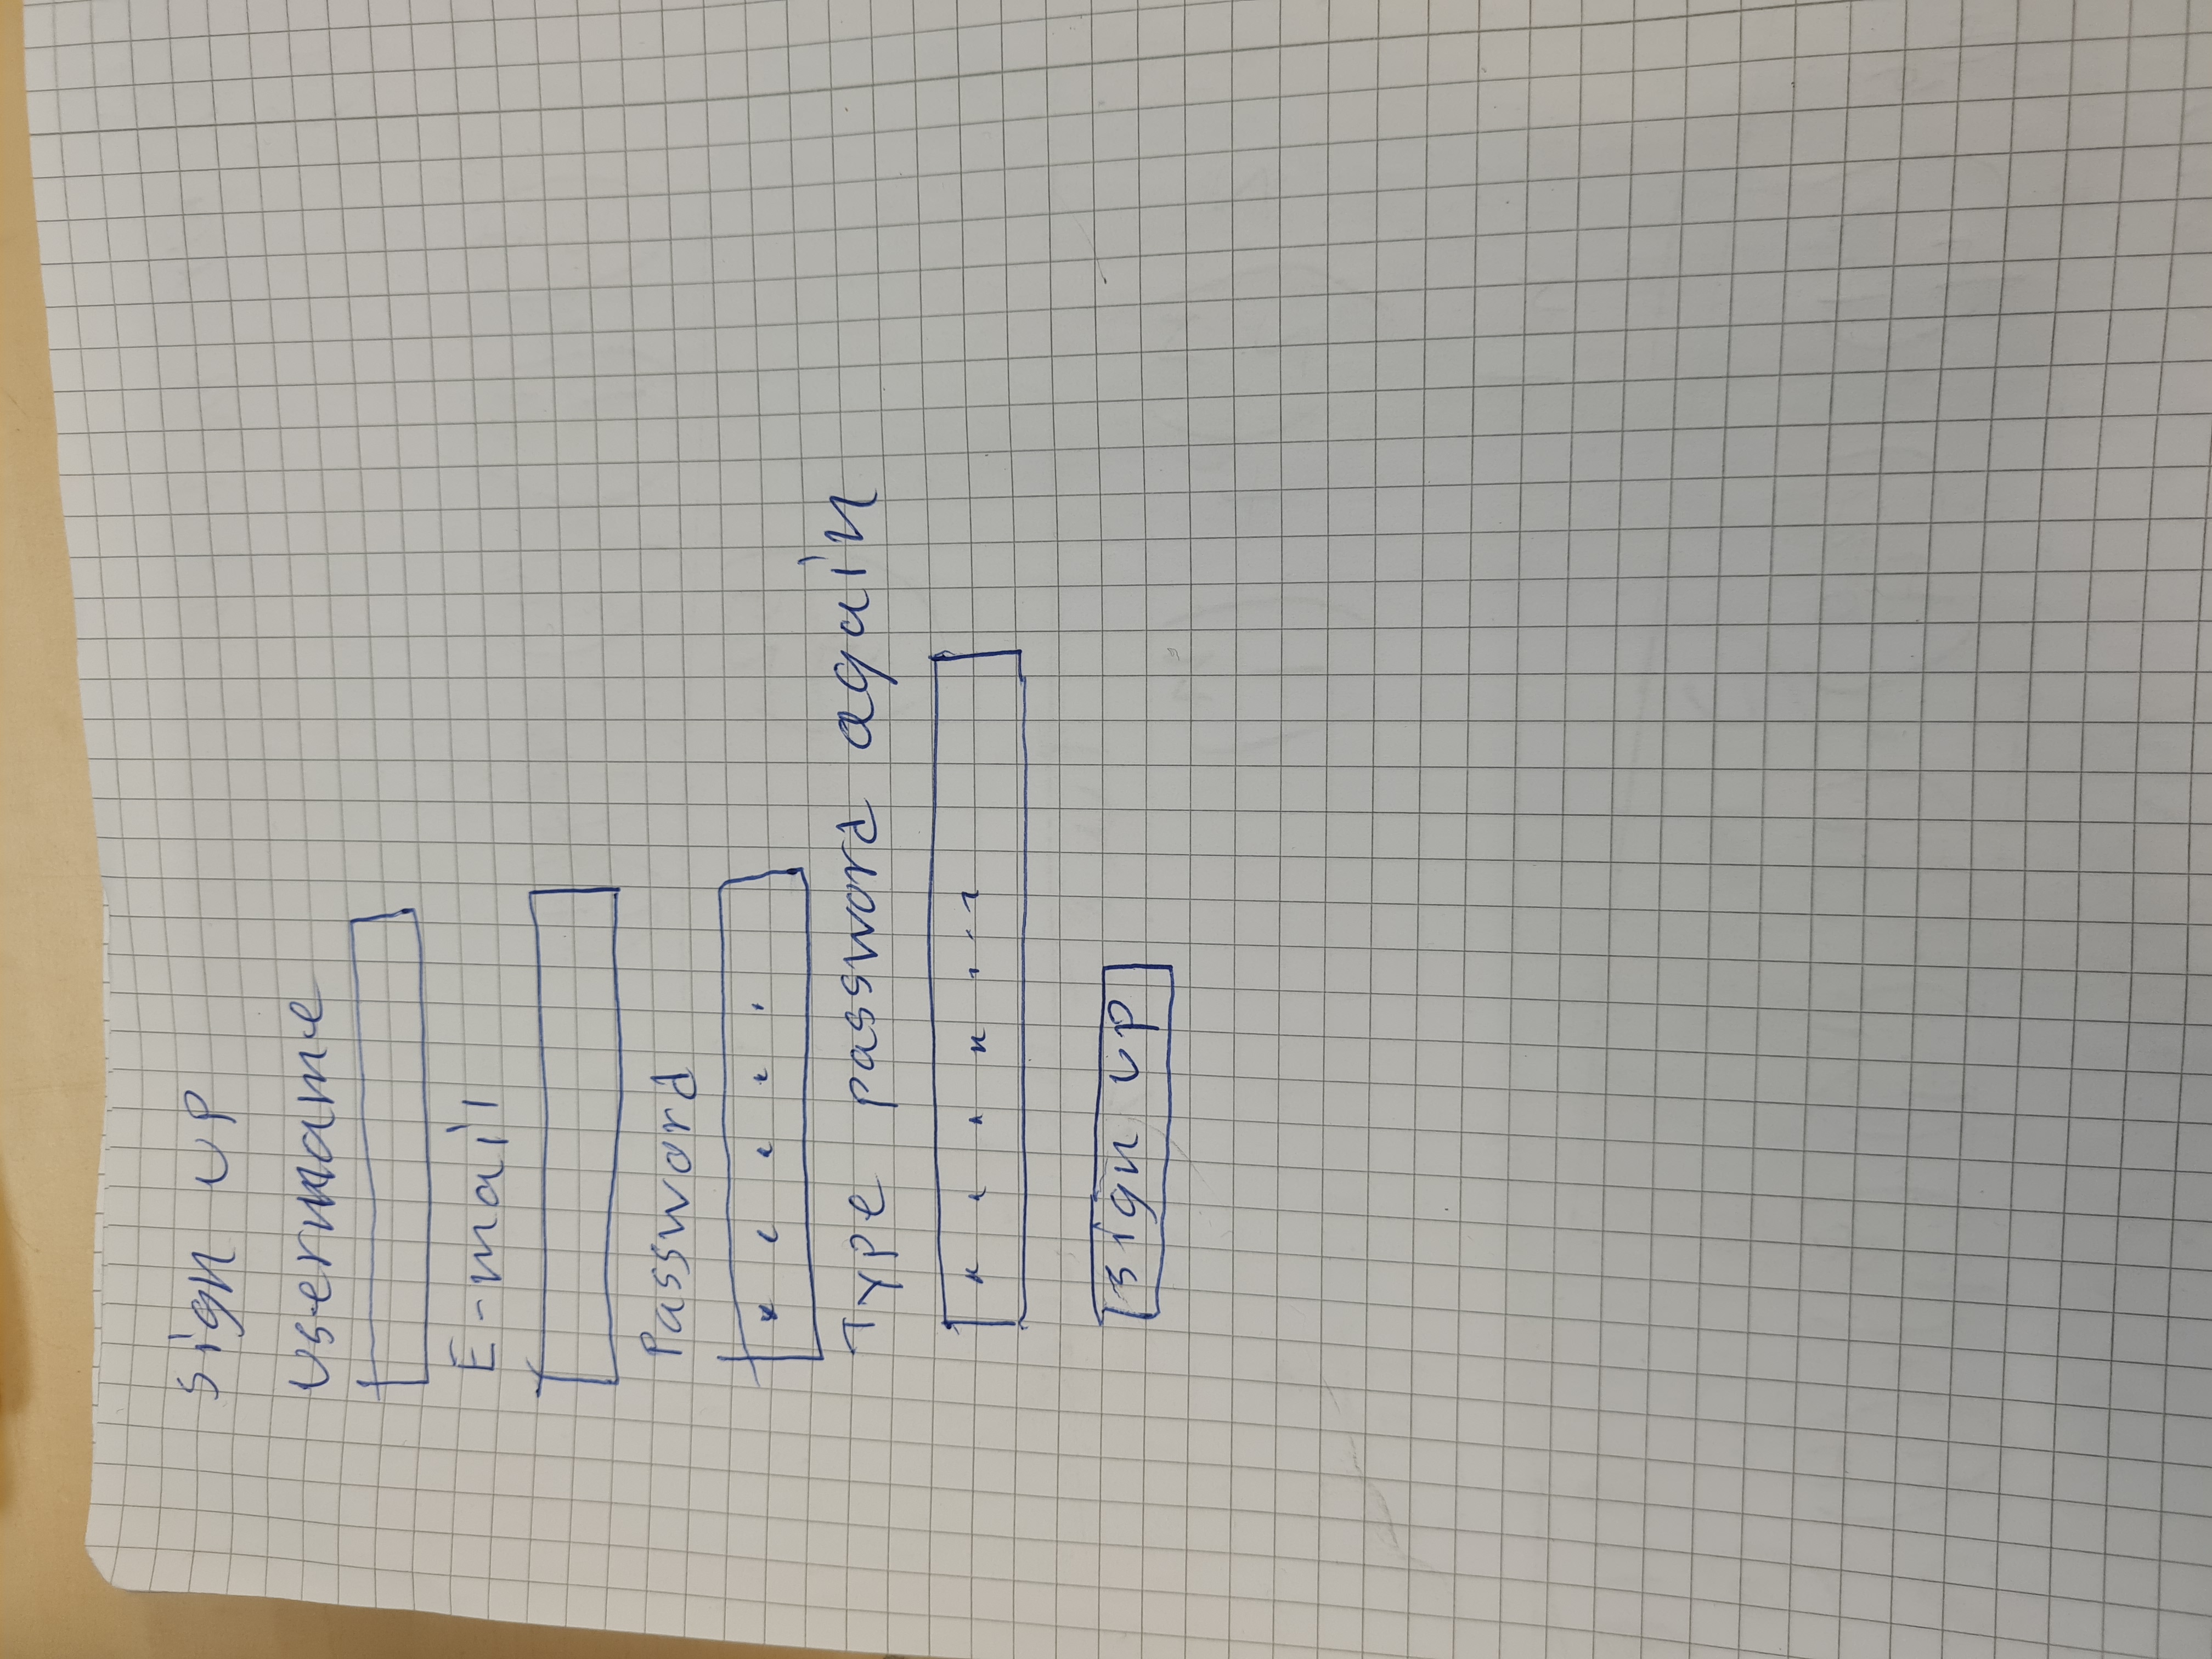 sign up
username
E-mail
Password
Type password again
sign up